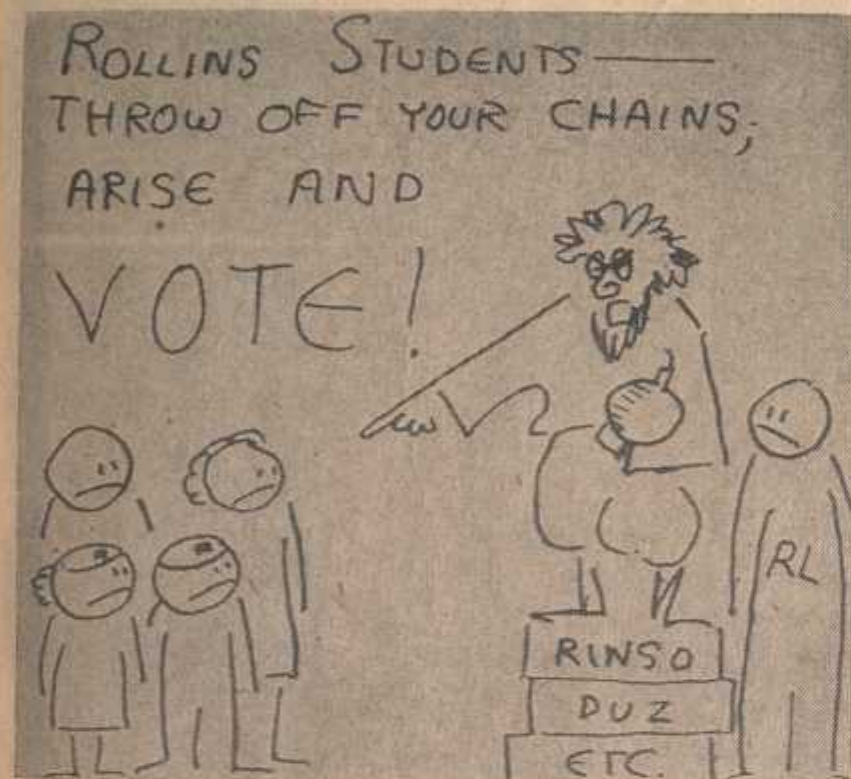 ROLLINS STUDENTS —
THROW OFF YOUR CHAINS;
ARISE AND
VOTE!
RL
RINSO
DUZ
ETC.